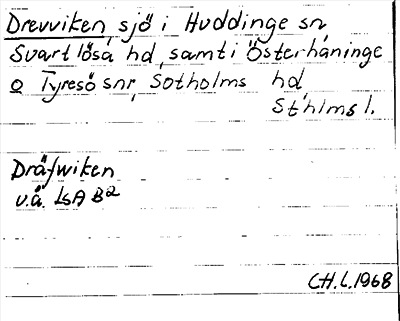 Drevviken, sjö i Huddinge sn,
Svartlösa hd, samt i Österhaninge
o Tyresö snr, Sotholms hd
Sthlms l.
Dräfwiken
v.ä. LSA B2
CH.L.1968